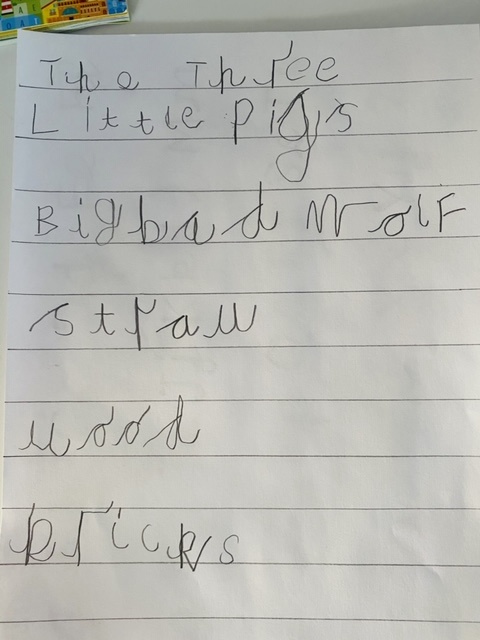 The Three
Little pigs
Big bad Wolf
straw
wood
bricks